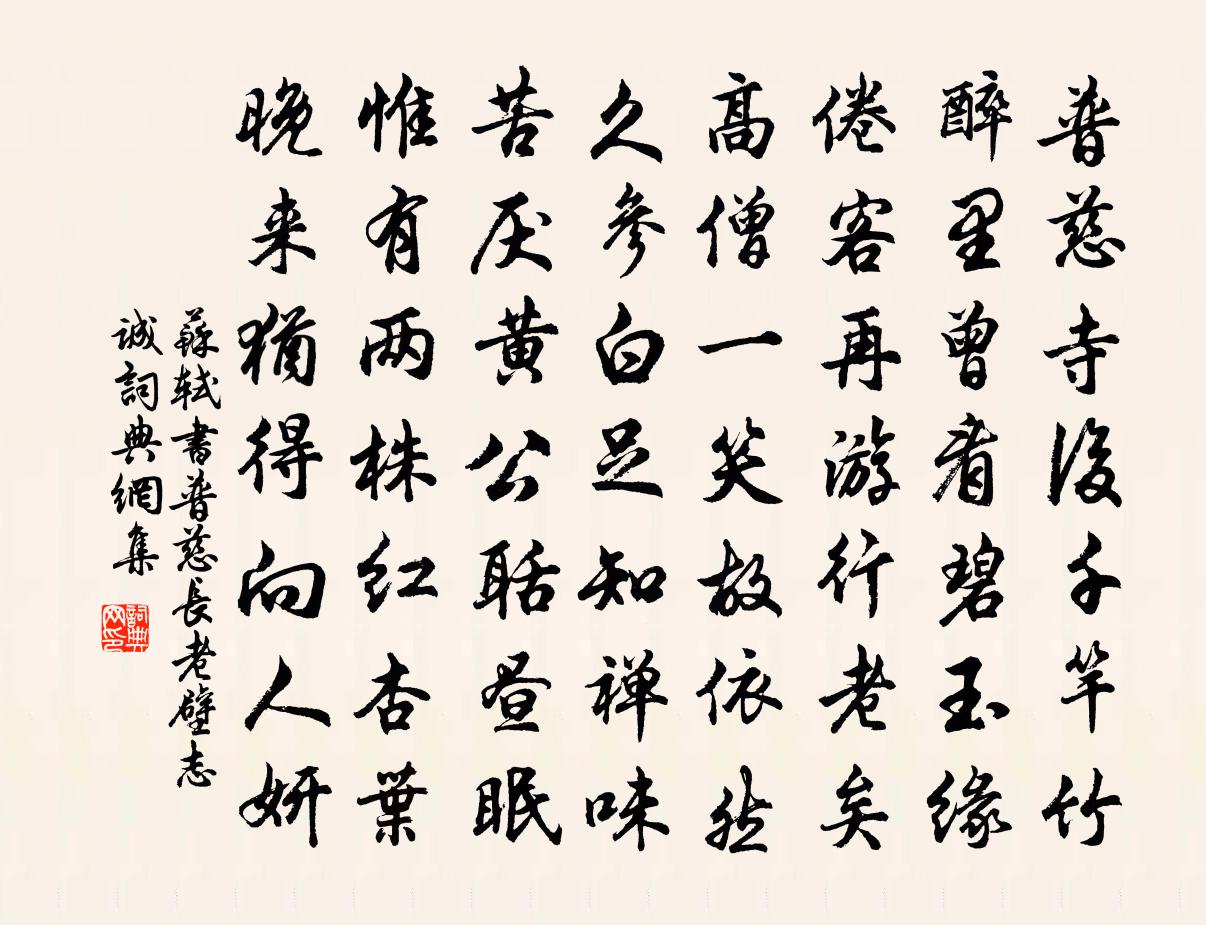 普慈寺後千竿竹
醉里曾看碧玉緣
倦客再游行老矣
高僧一笑故依然
久參白足知禅味
苦厌黄公聒昼眠
惟有两株红杏葉
晚来猶得向人妍
蘇軾書普慈長老壁志
誠詞典網集
詞典网印